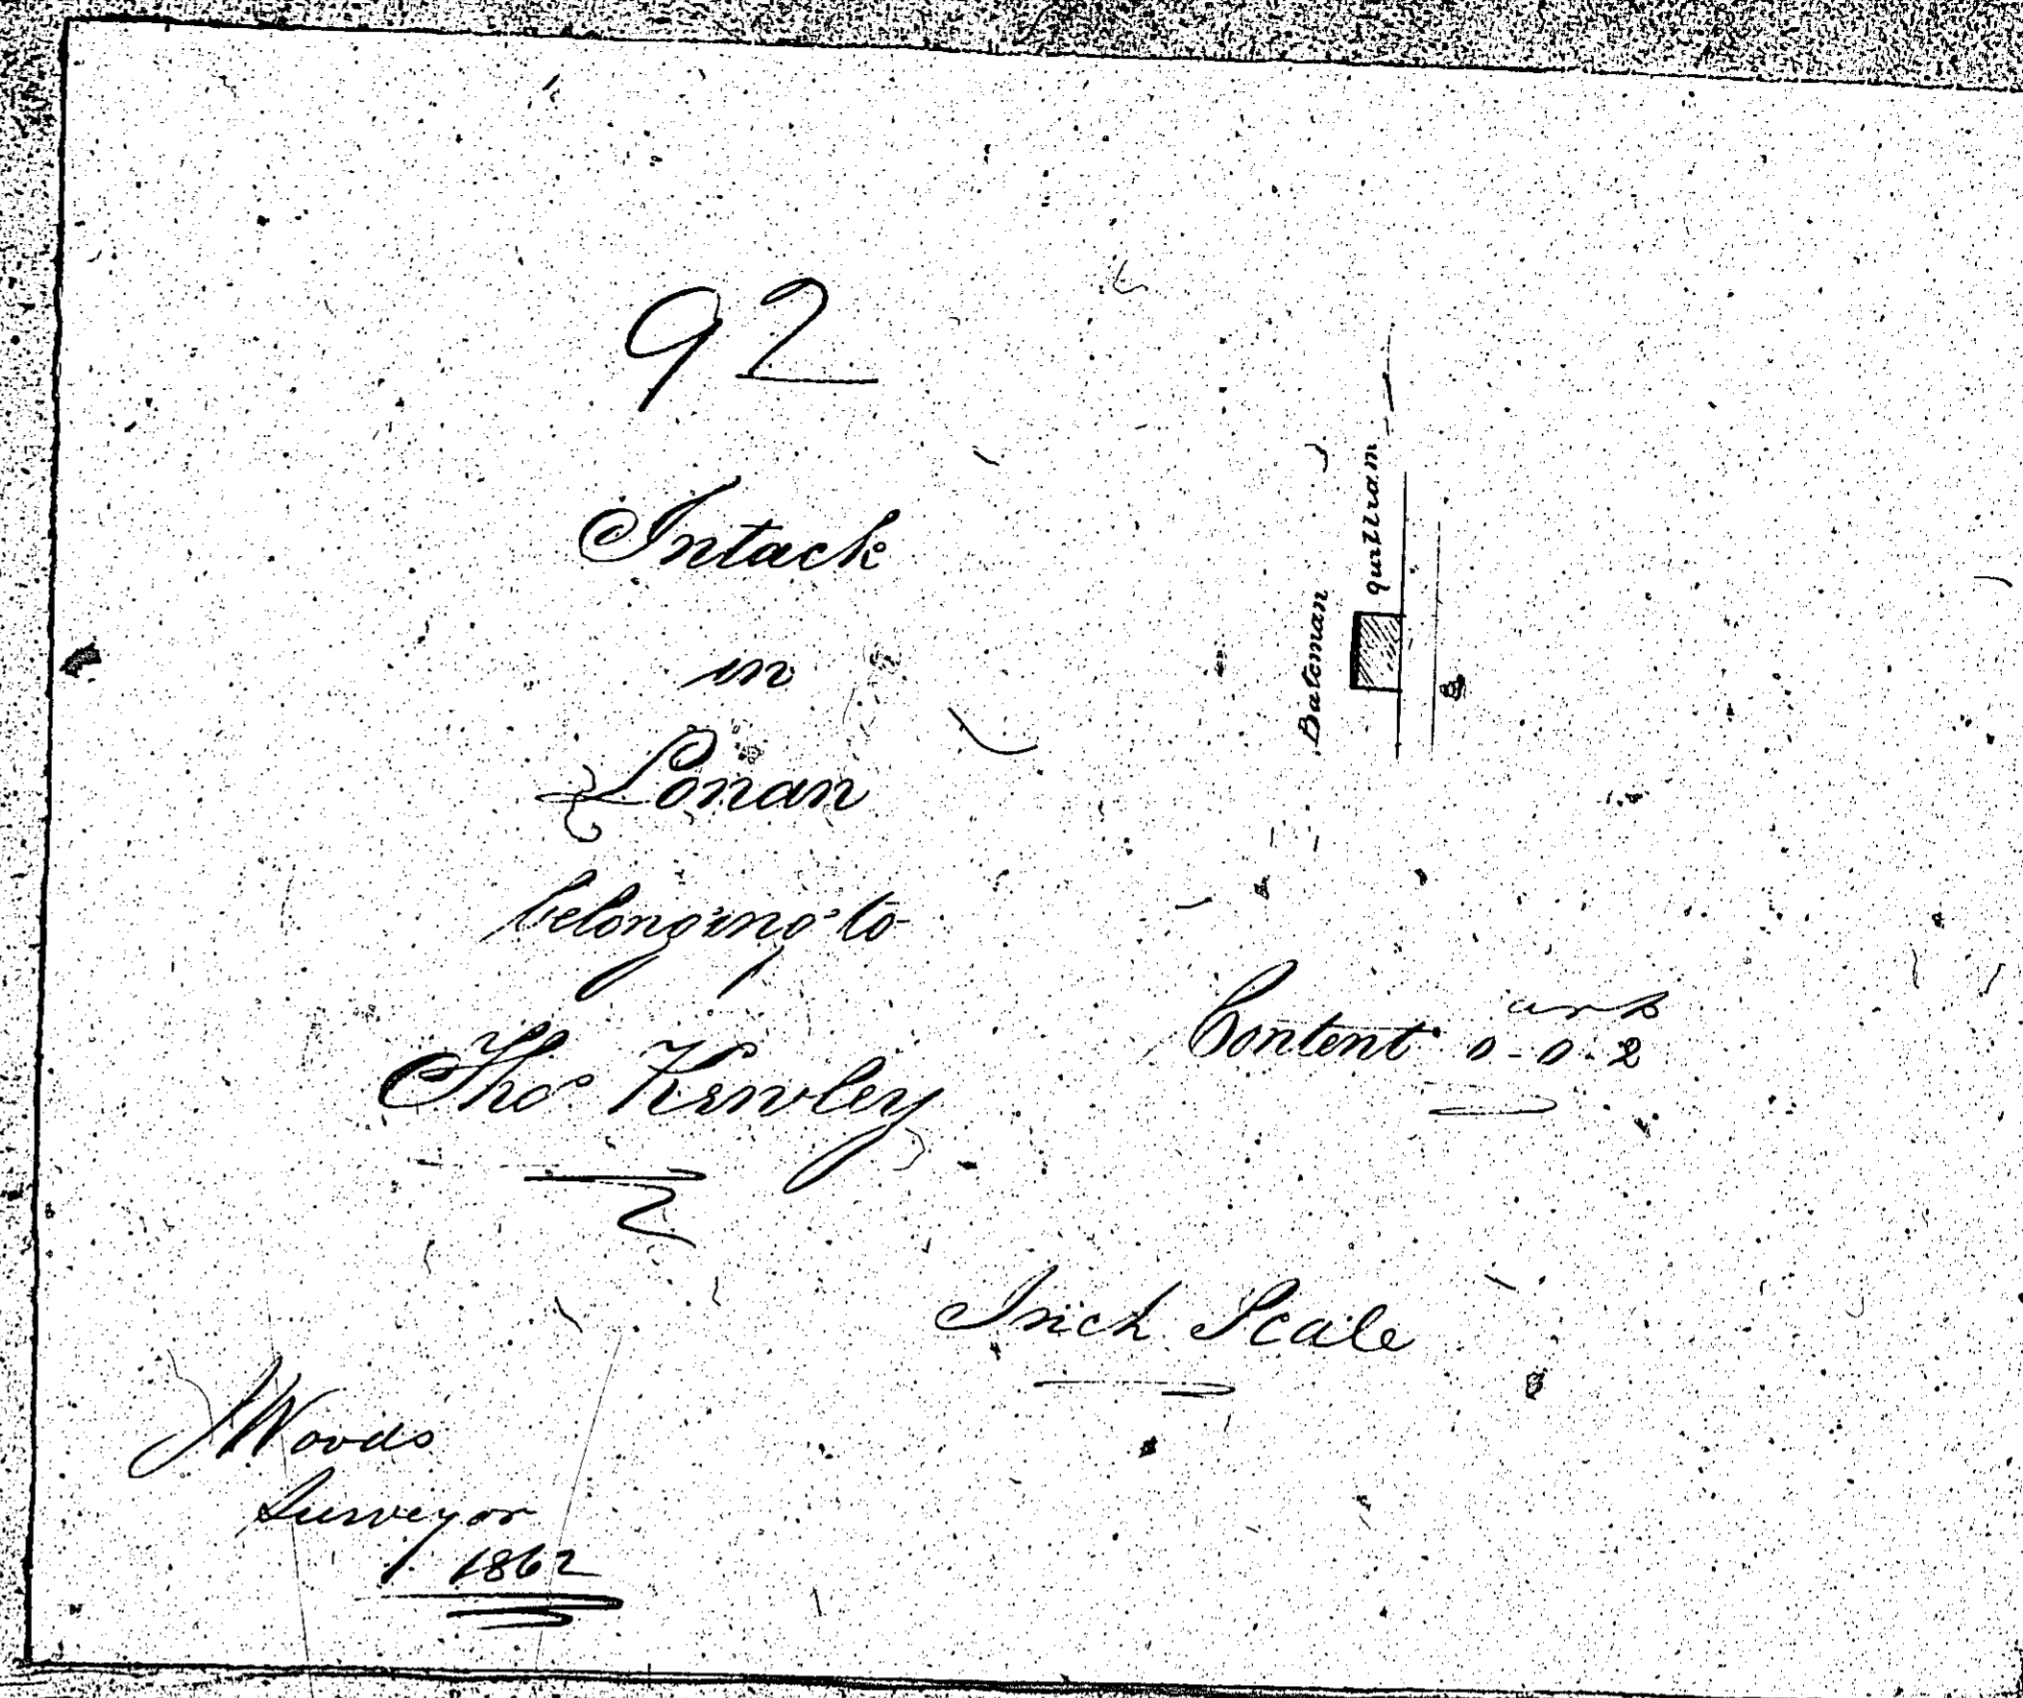 92
Intack
in
Lonan
belonging to
Thos Kewley
Bateman
Content a r p
0-0-2
Inch Scale
J Woods
Surveyor
1862